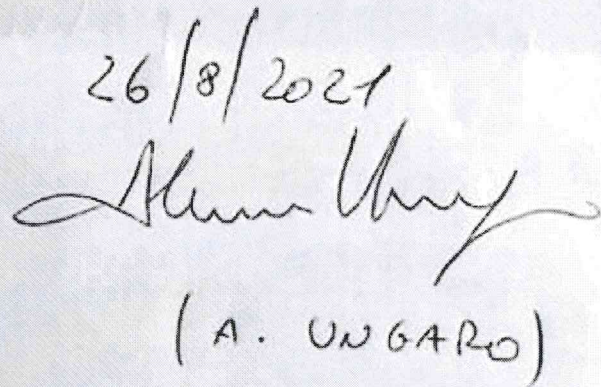 26/8/2021
(A. UNGARO)